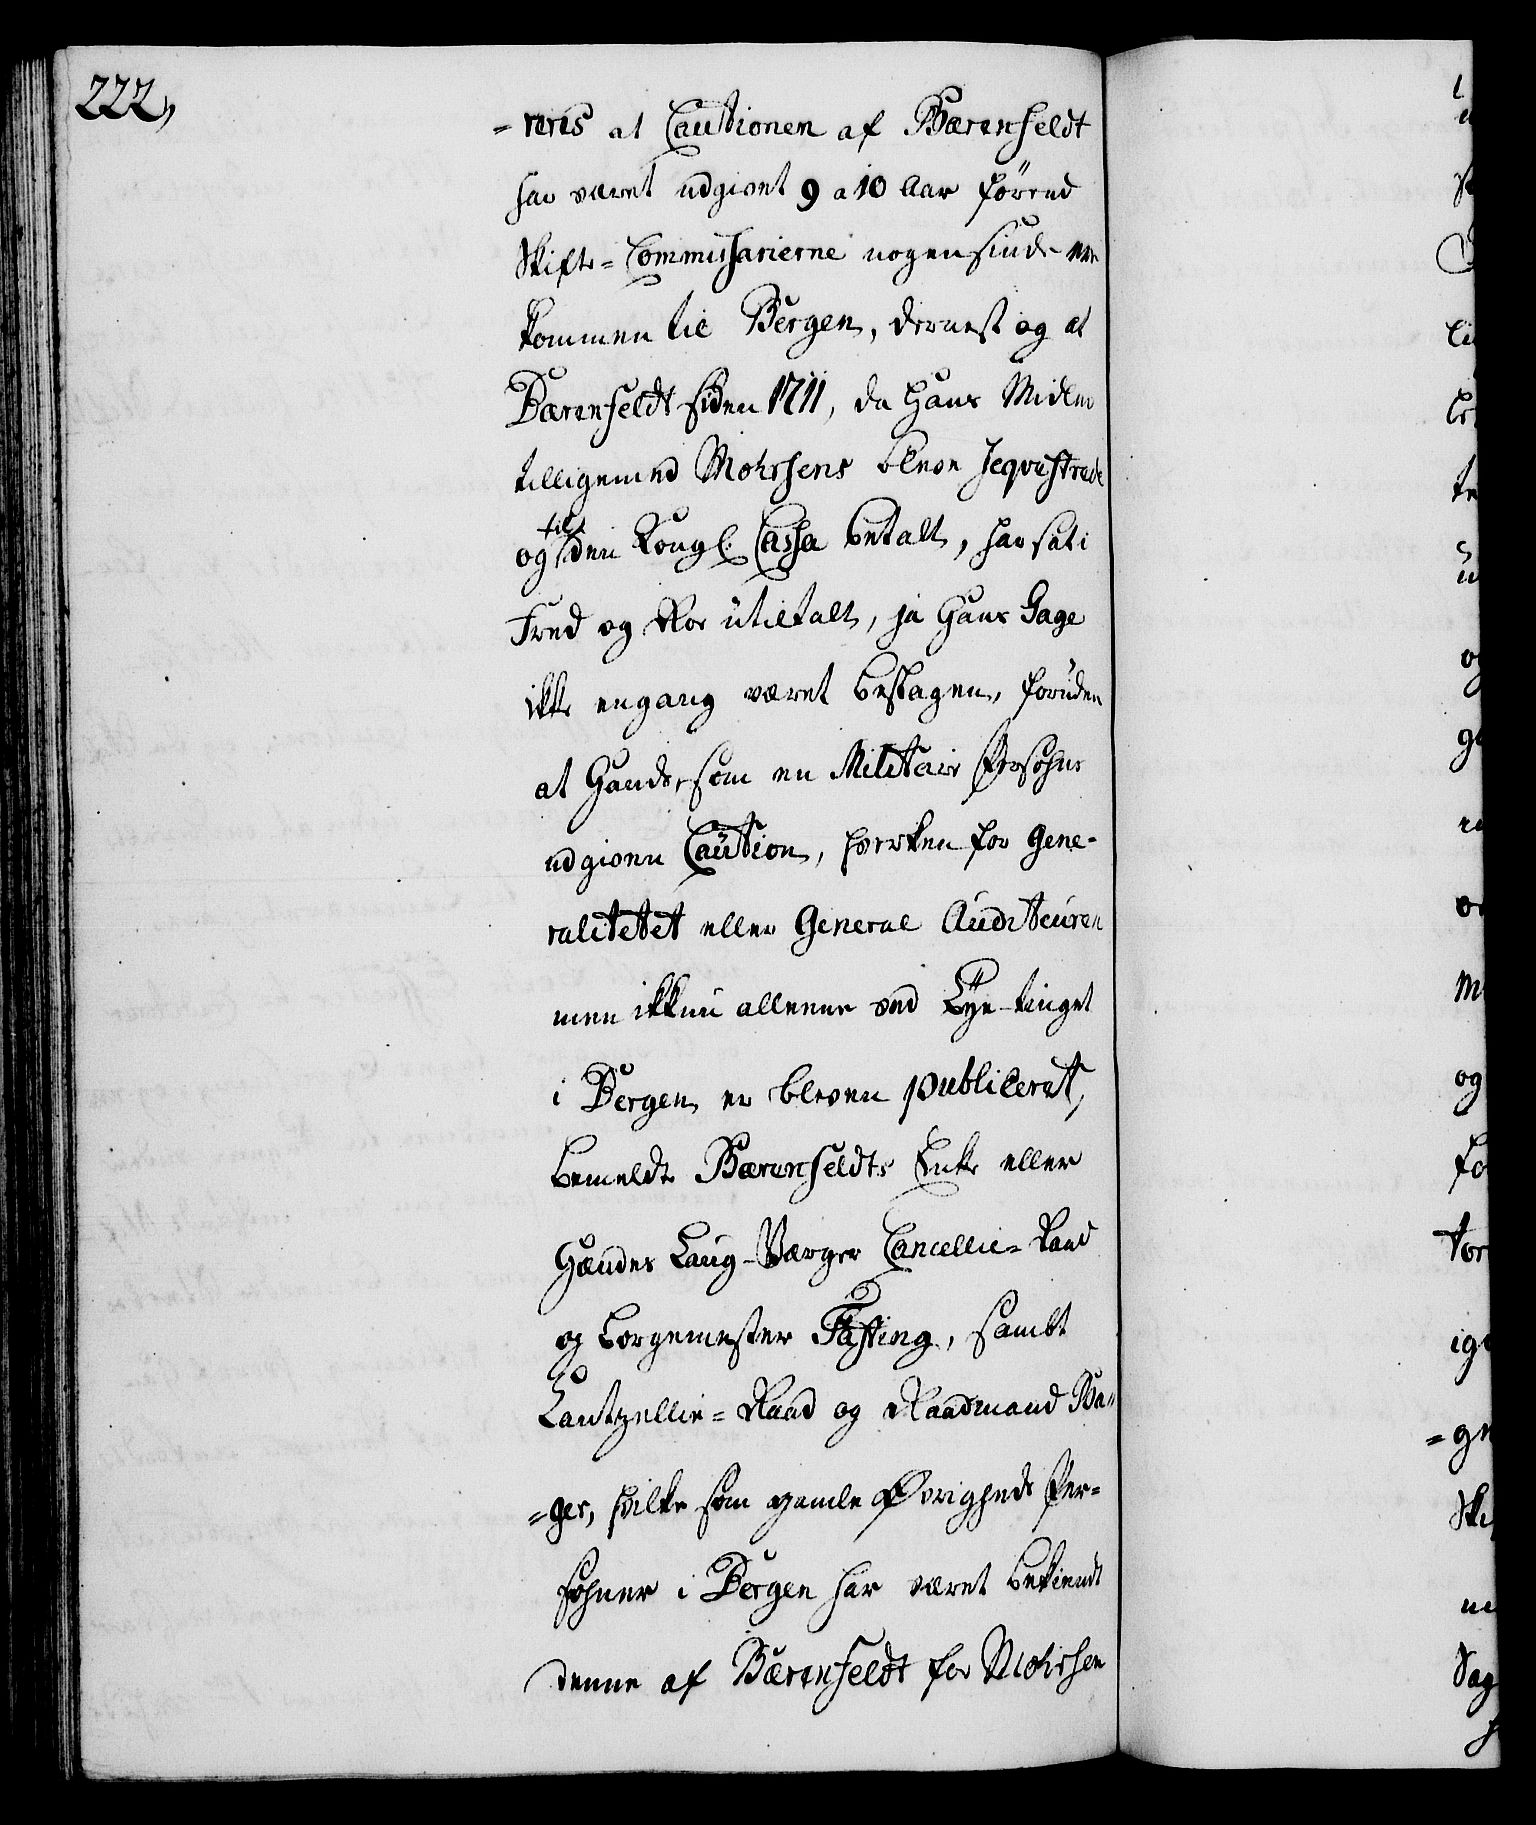 222,
=reres at Cautionen af Bærenfeldt
har været udgivet 9 a 10 Aar förend
Skifte=Commissarierne nogensinde ere
kommen til Bergen, dernest og at
Bærenfeldt siden 1711, da hans Midler
tilligemed Mohrsens bleve seqvestrede
og til den Kongl: Cassa betalt, har sat i
Fred og Roe utiltalt, ja hans Gage
ikke engang været beslagen, foruden
at hands, som en Militair Persohns
udgivne Caution, hverken for Gene-
ralitetet eller General Auditeuren
men ikkun alleene ved Bye-tinget
i Bergen er bleven publiceret,
bemeldte Bærenfeldts Enke eller
hendes Laug-Værger Cancellie-Raad
og Borgemester Fasting, sambt
Cantzellie=Raad og Raadmand Ba=
=ger, hvilke som gamle Øvrigheds Per=
sohner i Bergen har været bekiendt
denne af Bærenfeldt for Mohrsen